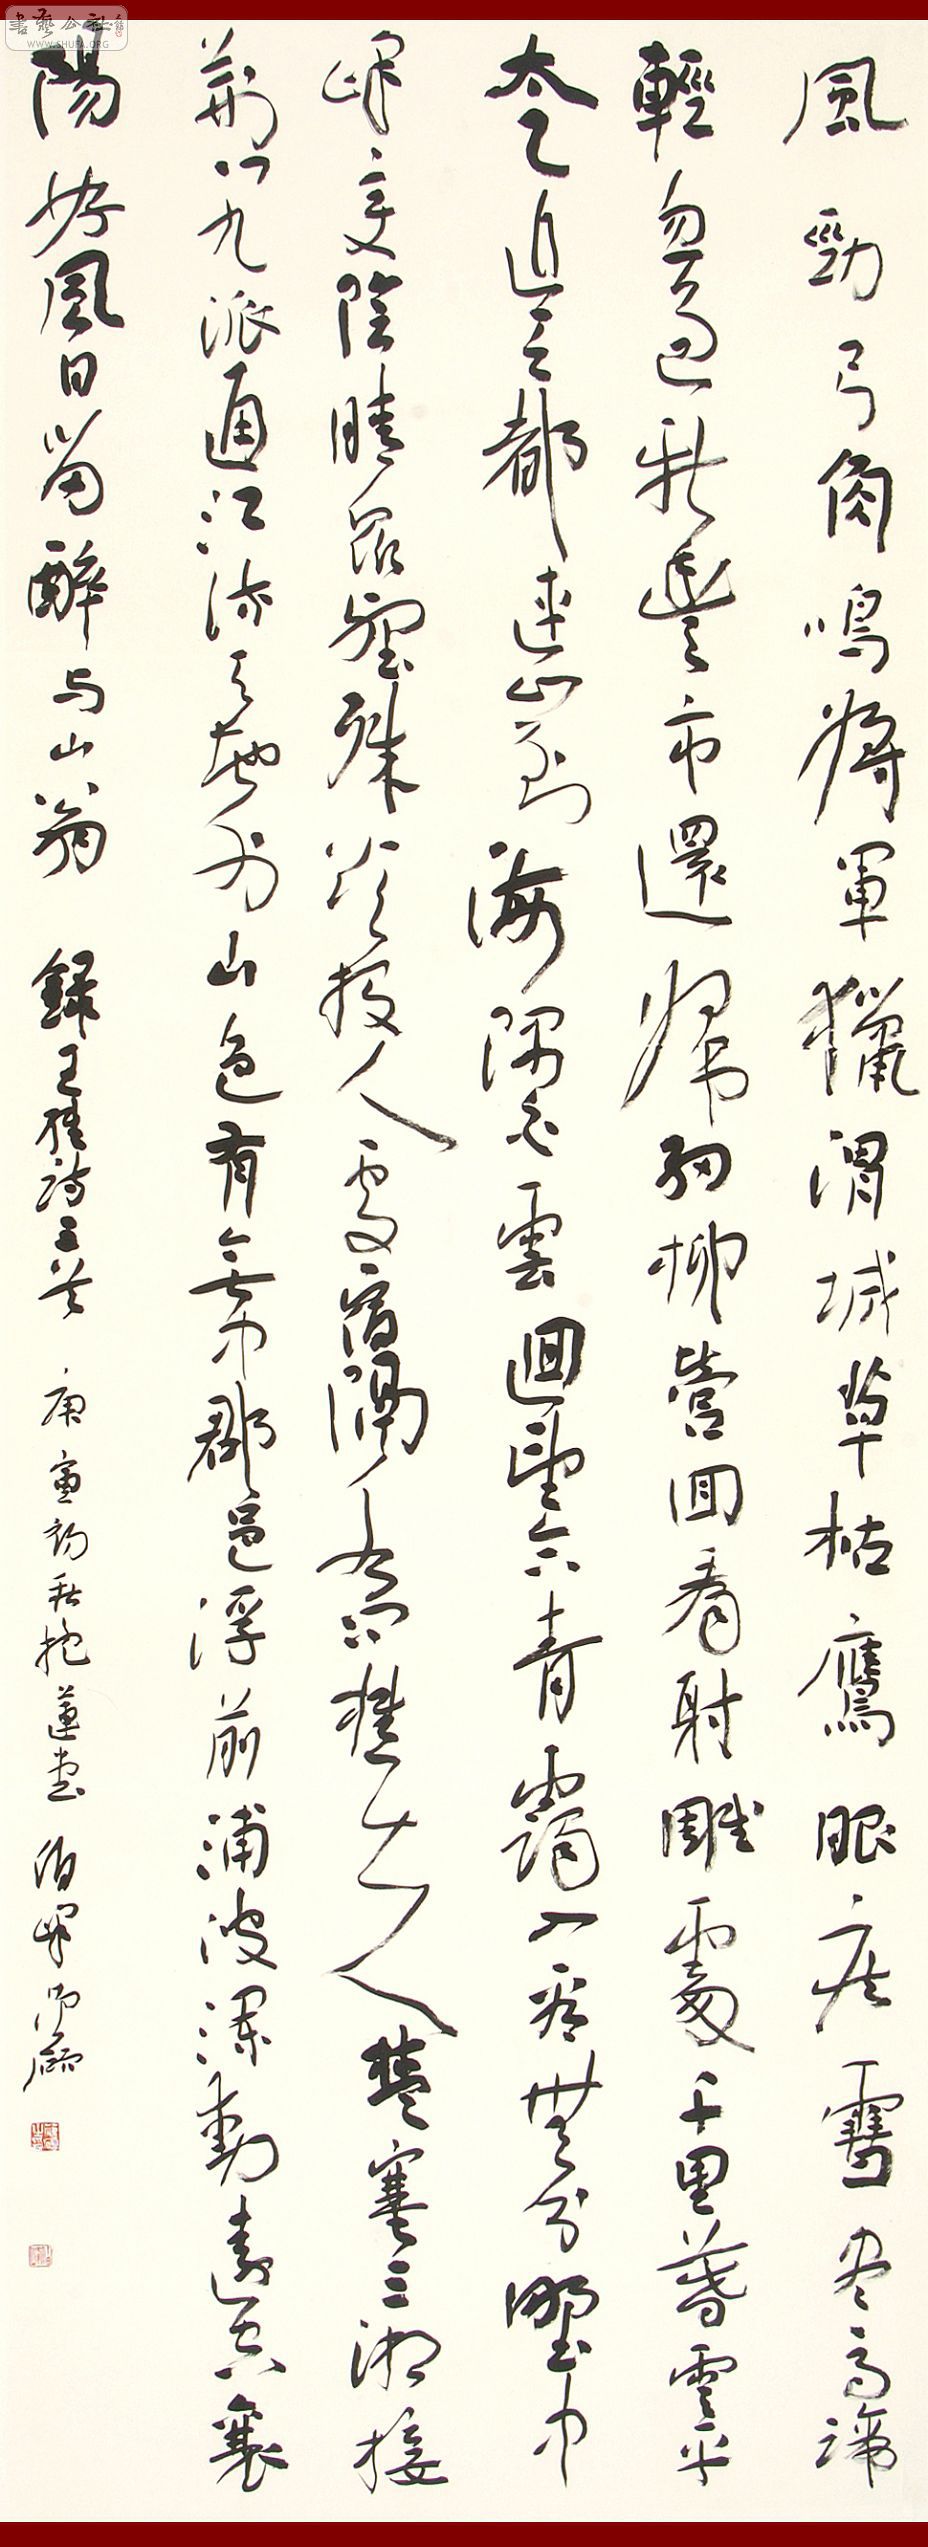 書藝公社
WWW.SHUFA.ORG
風勁弓角鳴將軍獵渭城草枯鷹眼疾雪尽馬蹄
輕忽過新豐市還歸細柳營回看射雕處千里暮雲平
太乙近天都連山到海隅白雲迴望合青靄入看無分野中
峰變陰晴眾壑殊欲投人處宿隔水問樵夫楚塞三湘接
荊門九派通江流天地外山色有無中郡邑浮前浦波瀾動遠空襄
陽好風日留醉与山翁 錄王維詩三首 庚寅初秋抱蓮堂